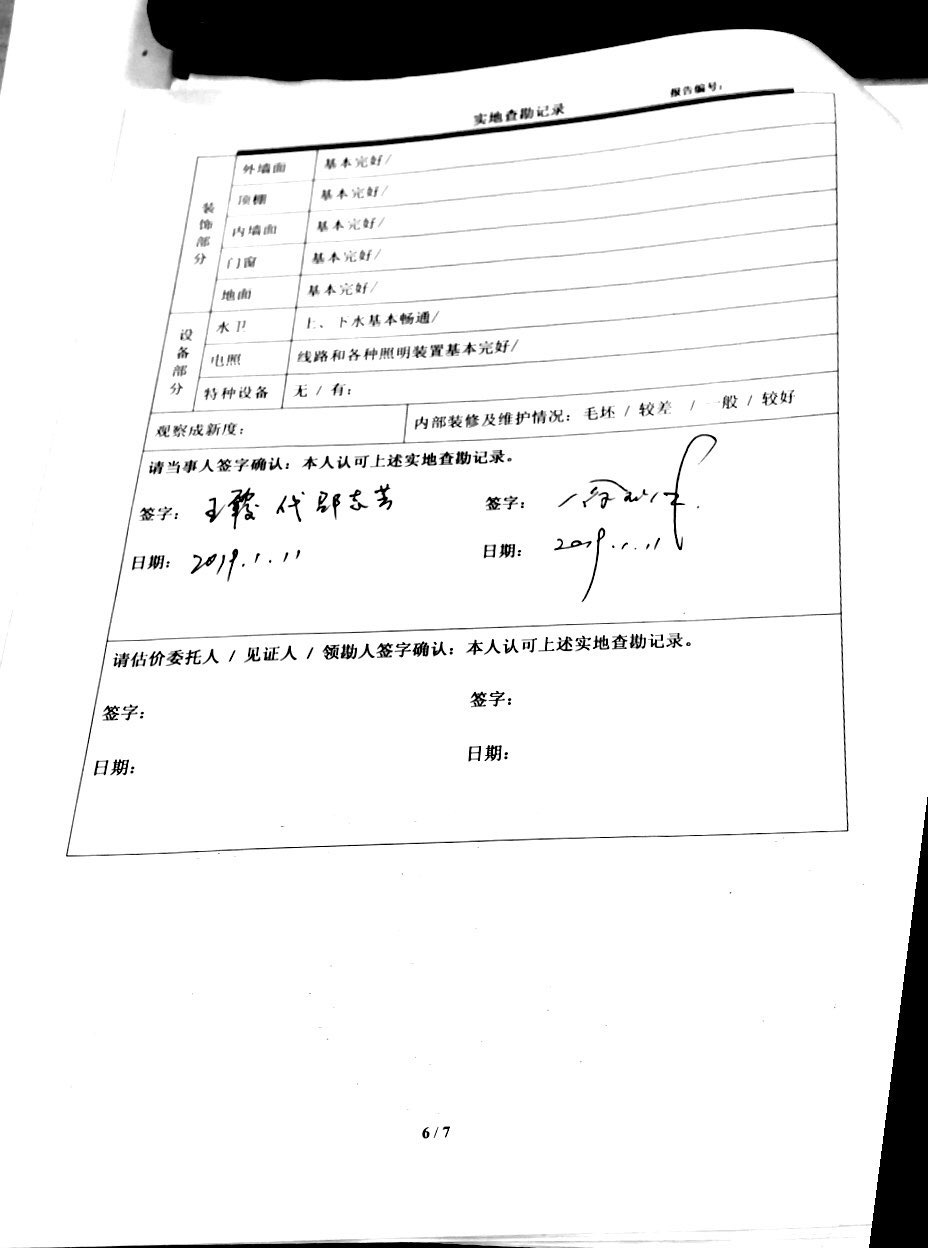 报告编号：
实地查勘记录
装饰部分
外墙面 基本完好/
顶棚 基本完好/
内墙面 基本完好/
门窗 基本完好/
地面 基本完好/
设备部分
水卫 上、下水基本畅通/
电照 线路和各种照明装置基本完好/
特种设备 无 / 有：
观察成新度： 内部装修及维护情况：毛坯 / 较差 / 一般 / 较好
请当事人签字确认：本人认可上述实地查勘记录。
签字： 王霞 代 签字：
日期： 2019.1.11 日期： 2019.1.11
请估价委托人 / 见证人 / 领勘人签字确认：本人认可上述实地查勘记录。
签字： 签字：
日期： 日期：
6 / 7